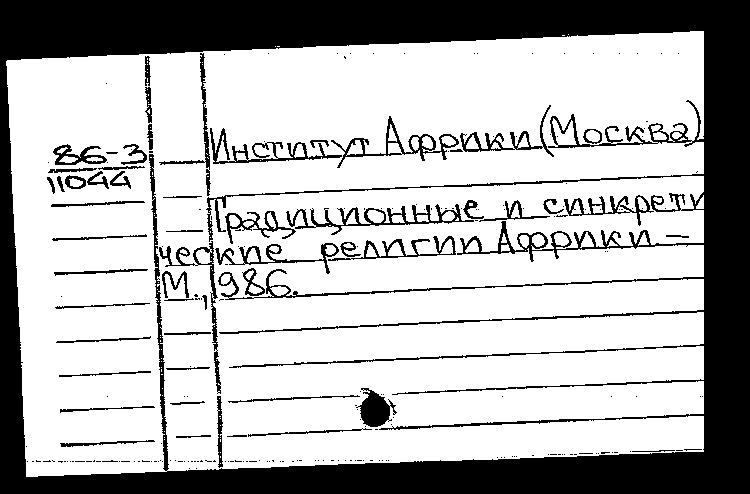 86-3
11044
Институт Африки (Москва)
Традиционные и синкрети
ческие религии Африки –
М., 1986.